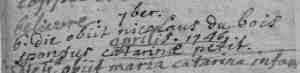 7ber.
6. die obiit nicolaus du bois
aprilis. 1746
sponsus catarinæ petit.
obiit maria catarina infans